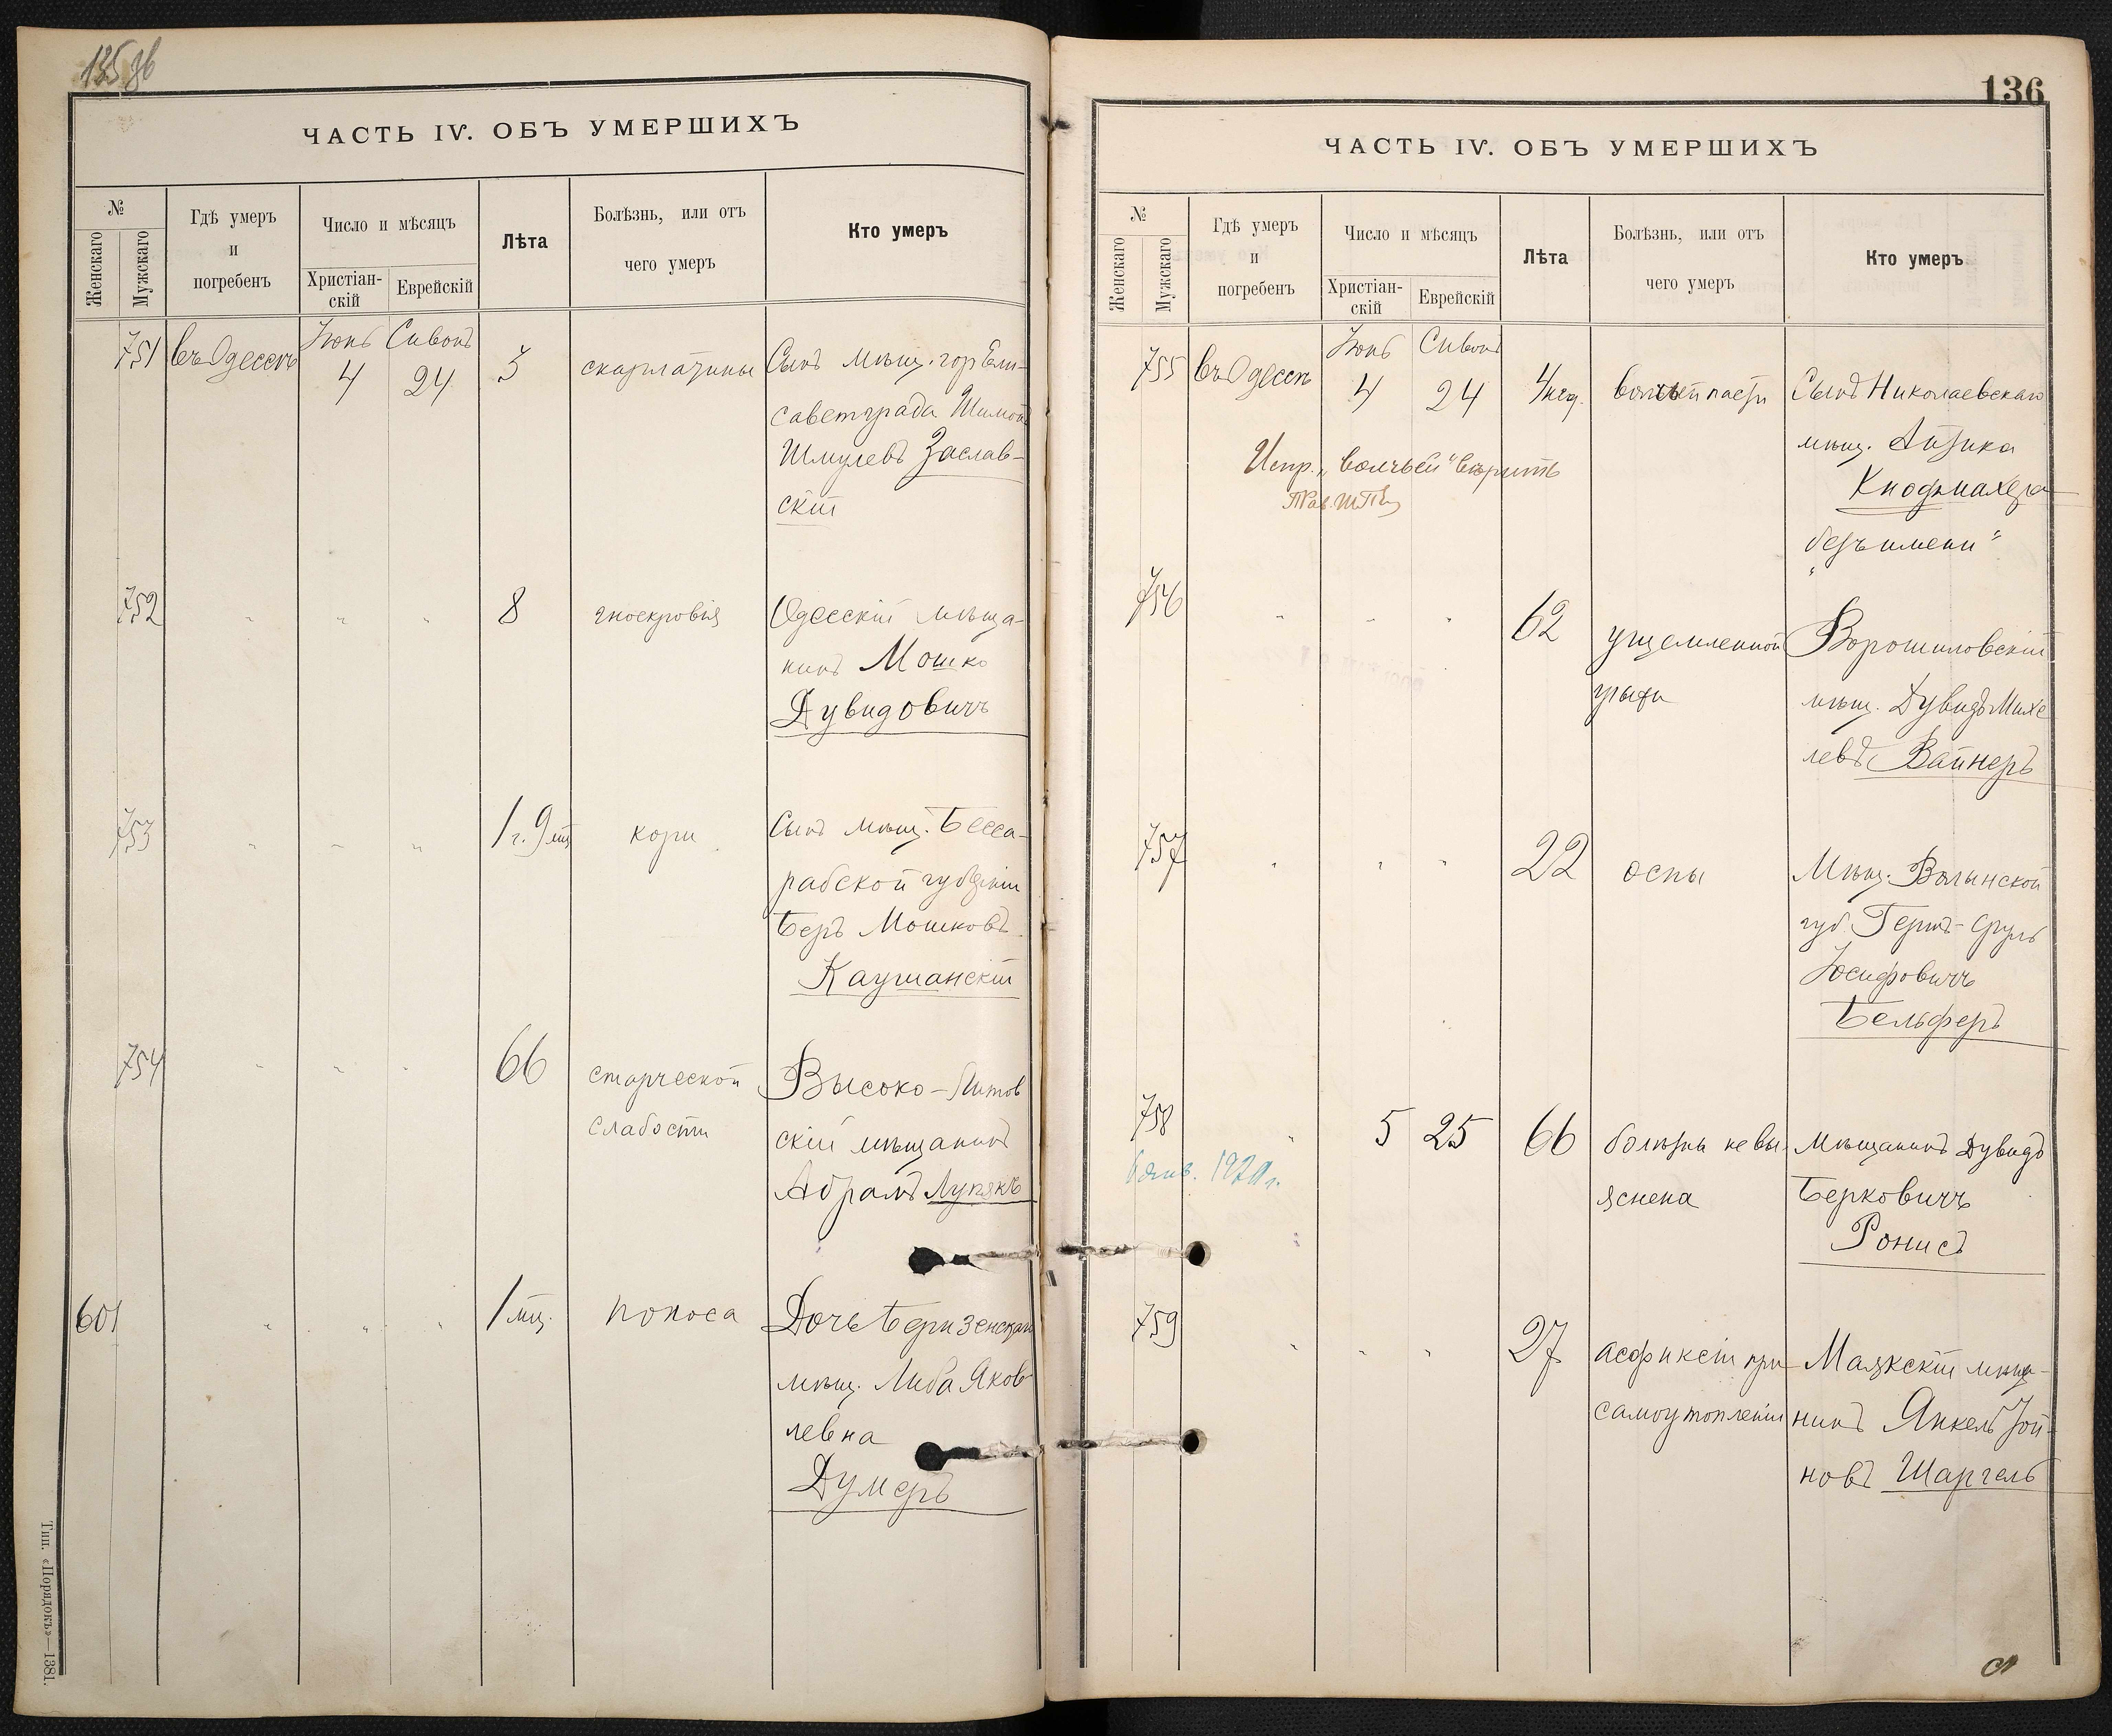 135 об
ЧАСТЬ IV. ОБЪ УМЕРШИХЪ
№
Женскаго
Мужскаго
Гдѣ умеръ
и
погребенъ
Число и мѣсяцъ
Христіан-
скій
Еврейскій
Лѣта
Болѣзнь, или отъ
чего умеръ
Кто умеръ
751 въ Одессѣ Іюнь 4 Сивонъ 24 3 скарлатины Сынъ мѣщ. гор Ели-
саветграда Шимонъ
Шмулевъ Заслав-
скій
752 " " " 8 гноекровія Одесскій мѣща-
нинъ Мошко
Дувидовичъ
753 " " " 1 г. 9 мц кори Сынъ мѣщ. Бесса-
рабской губерніи
Беръ Мошковъ
Каушанскій
754 " " " 66 старческой Высоко-Литов
слабости скій мѣщанинъ
Абрамъ Лупякъ
601 " " " 1 мц. поноса Дочь
мѣщ. Либа Яков
левна
Думеръ
Тип. «Порядокъ»—1381.
136
ЧАСТЬ IV. ОБЪ УМЕРШИХЪ
№
Женскаго
Мужскаго
Гдѣ умеръ
и
погребенъ
Число и мѣсяцъ
Христіан-
скій
Еврейскій
Лѣта
Болѣзнь, или отъ
чего умеръ
Кто умеръ
755 въ Одессѣ Іюнь 4 Сивонъ 24 4 нед. волчьей пасти Сынъ Николаевскаго
мѣщ. Айзика
Кнофмахера
"безъ имени"
Испр. "волчьей" вѣрить
756 " " " 62 ущемленной Ворошиловскій
грыжи мѣщ. Дувидъ Михе
левъ Вайнеръ
757 " " " 22 оспы Мѣщ. Волынской
губ. Гершъ-Сруль
Іосифовичъ
Бельферъ
758 " 5 25 66 болѣзнь не вы- Мѣщанинъ Дувидъ
яснена Берковичъ
Ронисъ
759 " " " 27 асфиксіи при Маякскій мѣща-
самоутопленіи нинъ Янкель Іой-
новъ Шаргель